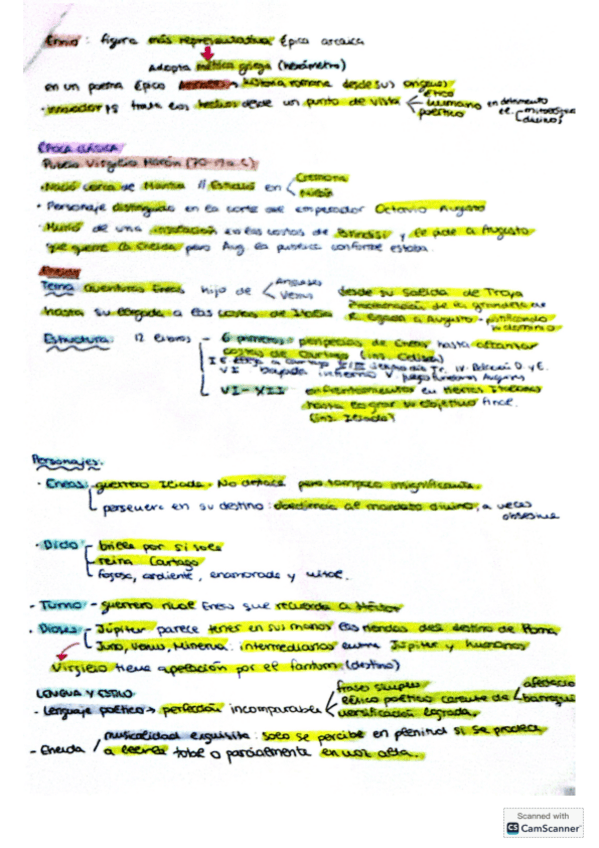 Ennio: figura más representativa Épica arcaica
Adopta métrica griega (hexámetro)
en un poema Épico Annales → historia romana desde sus orígenes
· innovador pq trata los hechos desde un punto de vista ético humano político en detrimento el mitológico (divino)
ÉPOCA CLÁSICA
Publio Virgilio Marón (70-19 a.C)
· Nació cerca de Mantua // Estudió en Cremona
· Personaje distinguido en la corte del emperador Octavio Augusto
· Murió de una insolación en las costas de Brindisi y le pide a Augusto
que queme la Eneida pero Aug. la publica conforme estaba.
Eneida
Tema aventuras Eneas hijo de Anquises Venus desde su salida de Troya
hasta su llegada a las costas de Italia
R. ligada a Augusto - justificando
su dominio
Estructura: 12 libros - 6 primeros: peripecias de Eneas hasta alcanzar
costas de Cartago (ins. Odisea)
VI bajada infierno V juegos funerarios Anquises
VI-XII enfrentamientos en tierras Italianas
hasta lograr su objetivo final.
(ins. Ilíada)
Personajes:
· Eneas: guerrero Ilíada. No destaca pero tampoco insignificante.
persevera en su destino: obediencia al mandato divino, a veces
obsesiva
· Dido brilla por sí sola
reina Cartago
fogosa, ardiente, enamorada y
· Turno - guerrero rival Eneas que recuerda a Héctor
· Dioses Júpiter parece tener en sus manos las riendas del destino de Roma
Juno, Venus, Minerva: intermediarios entre Júpiter y humanos
Virgilio tiene apelación por el fantum (destino)
LENGUA Y ESTILO
- Lenguaje poético → perfección incomparable frase simple
léxico poético carente de afectación barroquis
versificación lograda.
musicalidad exquisita: solo se percibe en plenitud si se procede
- Eneida / a leerla total o parcialmente en voz alta.
Scanned with
CS CamScanner